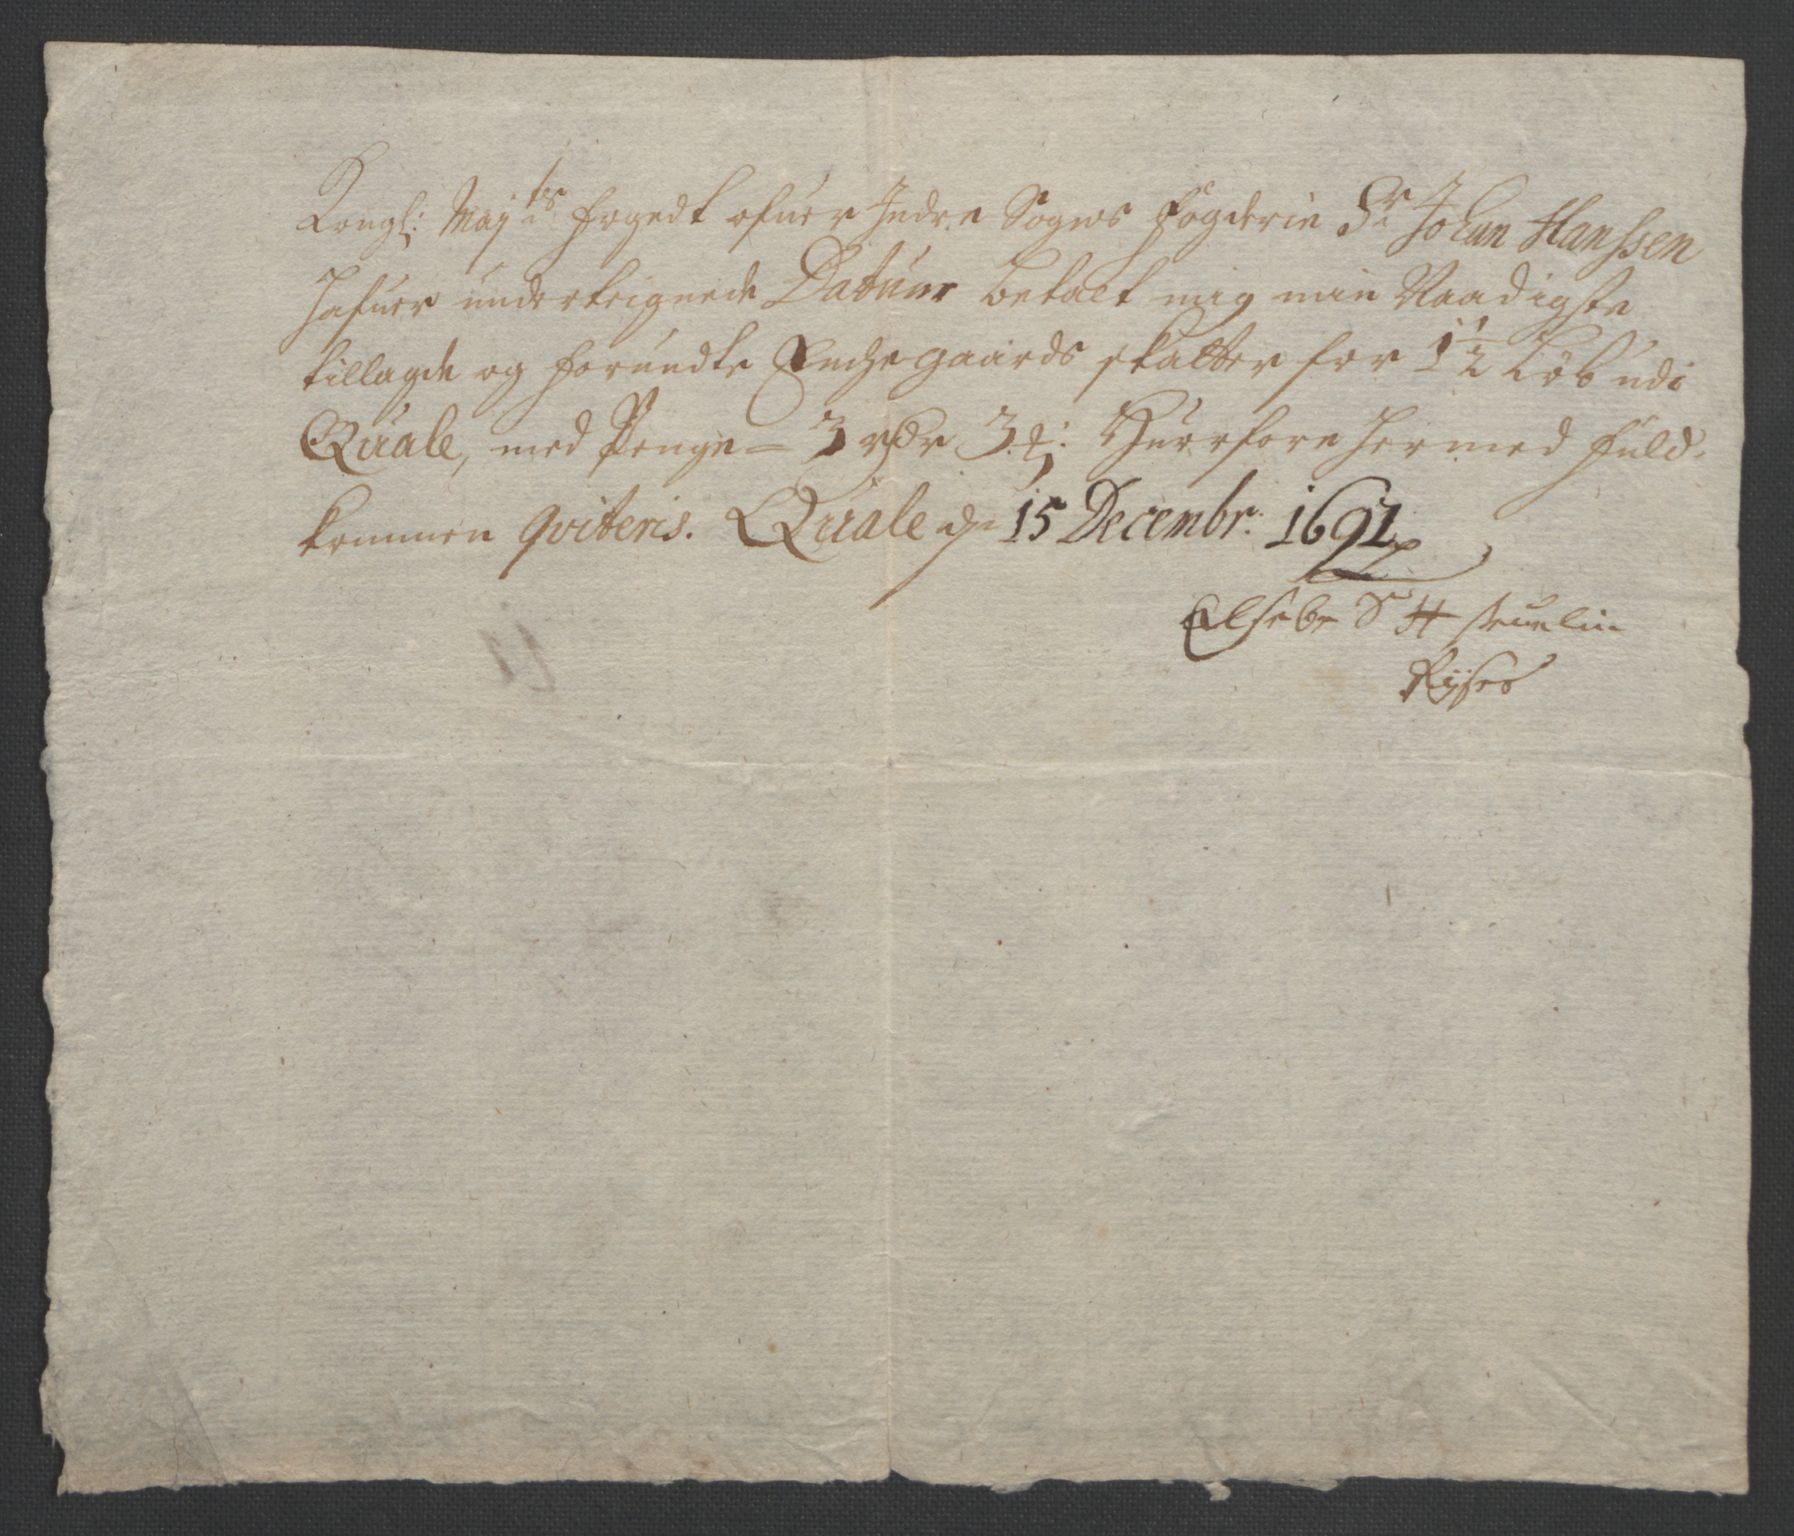 Kongl: Mayts fogedt ofuer Indre Sogns fögderie Sr Johan Hanssen
hafuer underteignede Datum betalt mig min Naadigste
tillagde og forundte Enche gaards skatter for 1½ Löb udi
Quale, med Penge = 3 rdr 3 ß: Huorfore hermed fuld-
kommen qviteris. Quale dn 15 Decembr: 1692
Elsebe S H
Rÿses